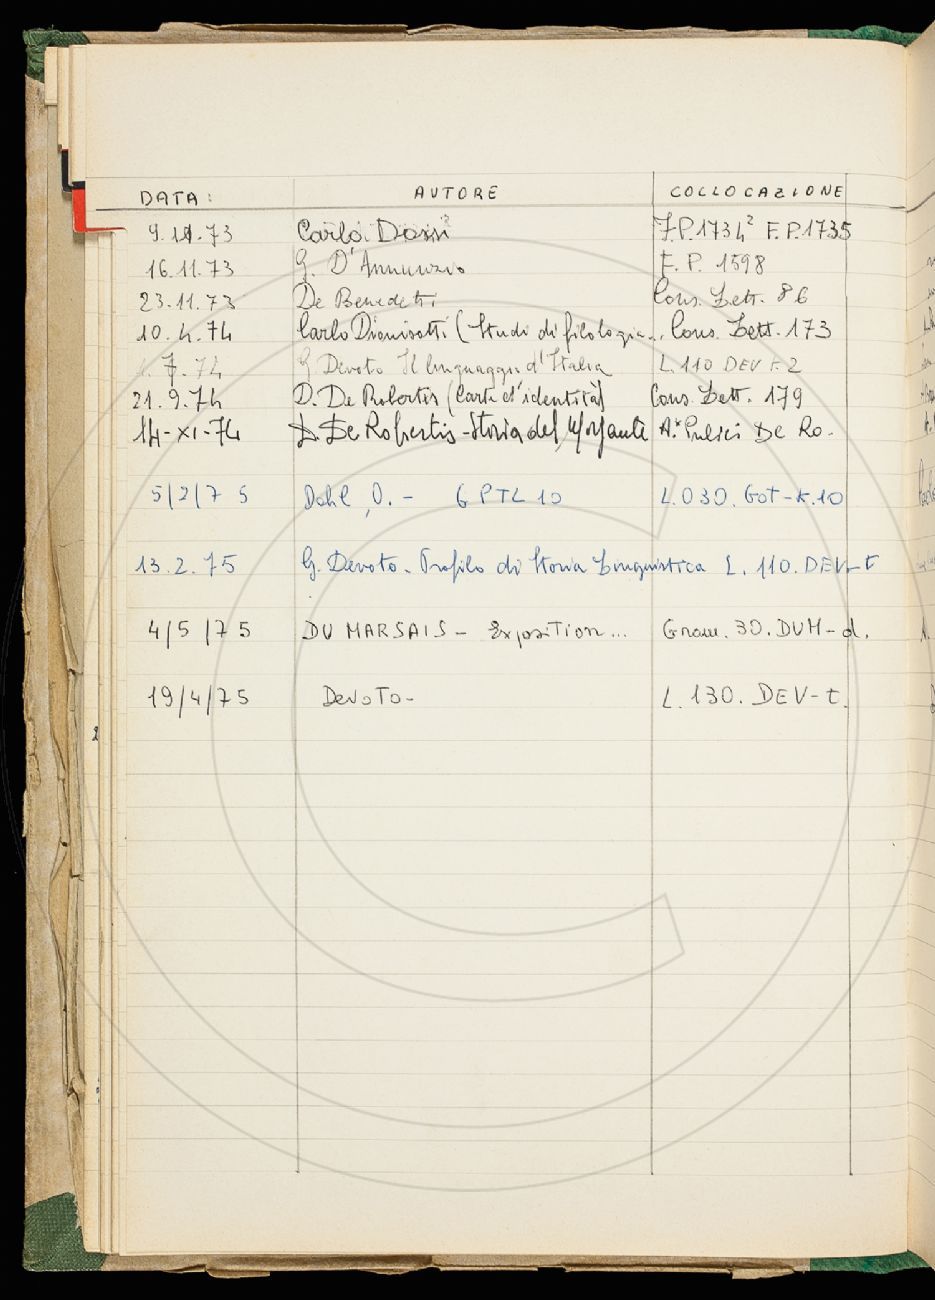 DATA: AUTORE COLLOCAZIONE
9.11.73 Carlo Dossi F.P.1734² F.P.1735
16.11.73 G. D'Annunzio F.P. 1598
23.11.73 De Benedetti Cons. Lett. 86
10.4.74 Carlo Dionisotti (Studi di filologia.. Cons. Lett. 173
7.74 G Devoto Il linguaggio d'Italia L.110 DEV t.2
21.9.74 D. De Robertis (Carte d'identità) Cons. Lett. 179
14-XI-74 D. De Robertis - Storia del Morgante A* Pulci De Ro.
5/2/75 Dahl, O. - GPTL 10 L.030. Got-k.10
13.2.75 G. Devoto - Profilo di Storia Linguistica L. 110. DEV-t
4/5/75 DU MARSAIS - Exposition... Gram. 30. DUM-d.
19/4/75 Devoto- L. 130. DEV-t.